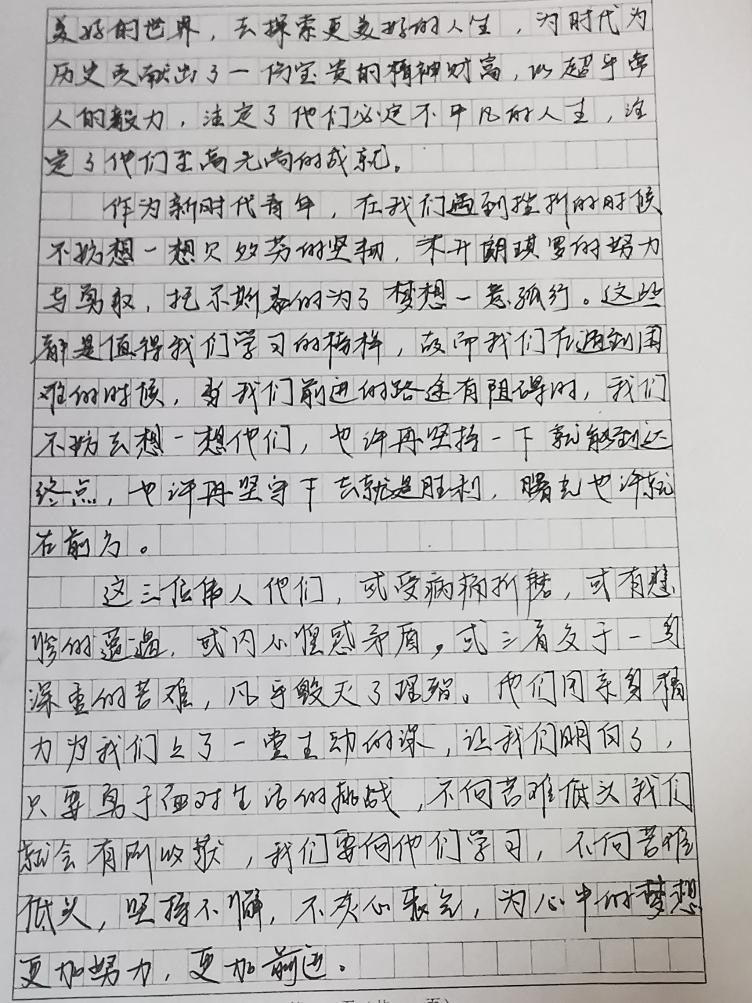 美好的世界，去探索更美好的人生，为时代为
历史贡献出了一份宝贵的精神财富，以超乎常
人的毅力，注定了他们必定不平凡的人生，注
定了他们至高无尚的成就。
作为新时代青年，在我们遇到挫折的时候
不妨想一想贝多芬的坚韧，米开朗琪罗的努力
与勇敢，托尔斯泰的为了梦想一意孤行。这些
都是值得我们学习的榜样，故而我们在遇到困
难的时候，当我们前进的路途有阻碍时，我们
不妨去想一想他们，也许再坚持一下就能到达
终点，也许再坚守下去就是胜利，曙光也许就
在前方。
这三位伟人他们，或受病痛折磨，或有悲
惨的遭遇，或内心惶惑矛盾。或三者交于一身
深重的苦难，几乎毁灭了理智。他们用亲身精
力为我们上了一堂生动的课，让我们明白了，
只要勇于面对生活的挑战，不向苦难低头我们
就会有所收获，我们要向他们学习，不向苦难
低头，坚持不懈，不灰心丧气，为心中的梦想
更加努力，更加前进。